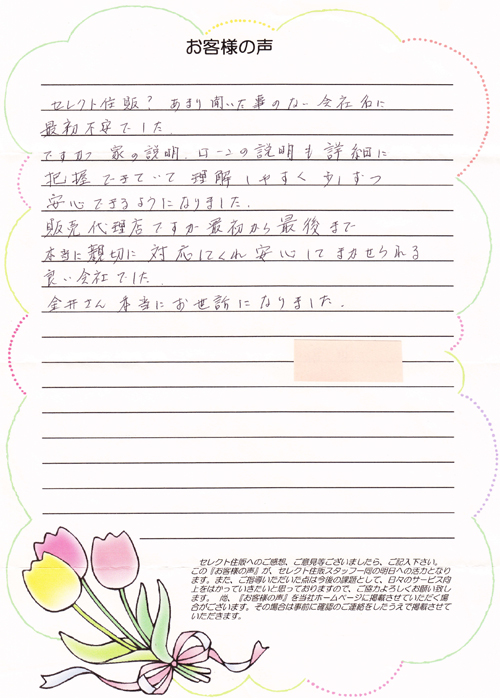 お客様の声
セレクト住販？ あまり聞いた事のない会社名に
最初不安でした。
ですが 家の説明、ローンの説明も詳細に
把握できていて 理解しやすく 少しずつ
安心できるようになりました。
販売代理店ですが最初から最後まで
本当に親切に対応してくれ安心してまかせられる
良い会社でした。
金井さん 本当にお世話になりました。
セレクト住販へのご感想、ご意見等ございましたら、ご記入下さい。
この『お客様の声』が、セレクト住販スタッフ一同の明日への活力となり
ます。また、ご指導いただいた点は今後の課題として、日々のサービス向
上をはかっていきたいと思っておりますので、ご協力よろしくお願い致し
ます。 尚、『お客様の声』を当社ホームページに掲載させていただく場
合がございます。その場合は事前に確認のご連絡をしたうえで掲載させて
いただきます。